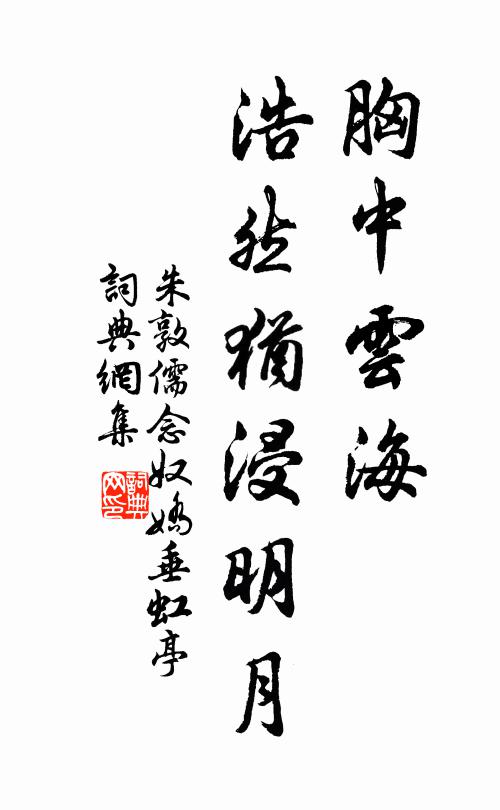 胸中雲海
浩然猶浸明月
朱敦儒念奴嬌垂虹亭
詞典網集
詞典
网印